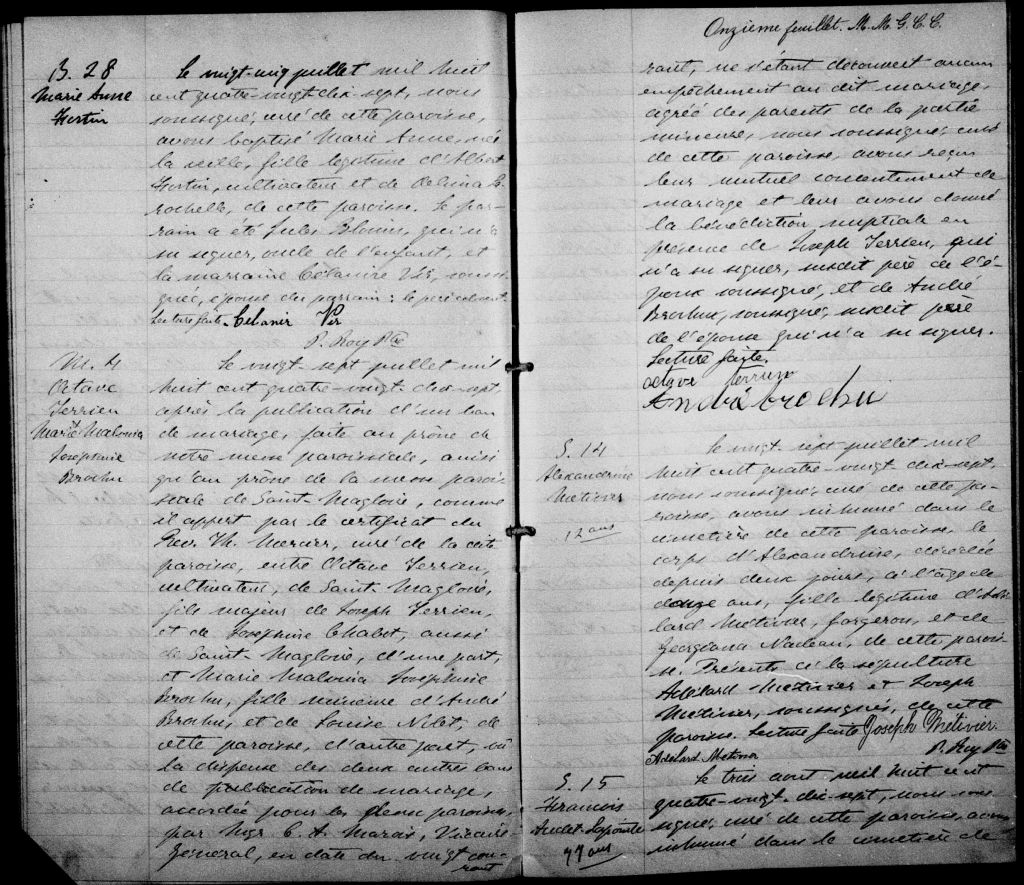 B. 28
Marie Anne
Fortin
Le vingt-cinq juillet mil huit
cent quatre-vingt-dix-sept, nous
soussigné, curé de cette paroisse,
avons baptisé Marie Anne, née
la veille, fille légitime d'Albert
Fortin, cultivateur et de Delima La-
rochelle, de cette paroisse. Le par-
rain a été Jules Blouin, qui n'a
su signer, oncle de l'enfant, et
la marraine Célanire soussi-
gnée, épouse du parrain: le père absent.
Lecture faite. Celanir
P. Roy Ptre
M. 4
Octave
Terrien
Marie Malouina
Joséphine
Brochu
Le vingt-sept juillet mil
huit cent quatre-vingt-dix-sept,
après la publication d'un ban
de mariage, faite au prône de
notre messe paroissiale, ainsi
qu'au prône de la messe parois-
siale de Saint-Magloire, comme
il appert par le certificat du
Revr Th. Mercier, curé de la dite
paroisse, entre Octave Terrien,
cultivateur, de Saint-Magloire,
fils majeur de Joseph Terrien,
et de Joséphine Chabot, aussi
de Saint-Magloire, d'une part,
et Marie Malouina Joséphine
Brochu, fille mineure d'André
Brochu, et de Louise Nolet, de
cette paroisse, d'autre part, vu
la dispense des deux autres bans
de publication de mariage,
accordée pour les deux paroisses,
par Mgr C. A. Marois, Vicaire
Général, en date du vingt cou-
rant
Onzième feuillet. M. M. G. C. C.
rant, ne s'étant découvert aucun
empêchement au dit mariage,
agréé des parents de la partie
mineure, nous soussigné, curé
de cette paroisse, avons reçu
leur mutuel consentement de
mariage et leur avons donné
la bénédiction nuptiale en
présence de Joseph Terrien, qui
n'a su signer, susdit père de l'é-
poux soussigné, et de André
Brochu, soussigné, susdit père
de l'épouse qui n'a su signer.
Lecture faite.
octave terrien
André brochu
S. 14
Alexandrine
Métivier
12 ans
Le vingt-sept juillet mil
huit cent quatre-vingt-dix-sept,
nous soussigné, curé de cette pa-
roisse, avons inhumé dans le
cimetière de cette paroisse, le
corps d'Alexandrine, décédée
depuis deux jours, à l'âge de
douze ans, fille légitime d'Adé-
lard Métivier, forgeron, et de
Georgiana Nadeau, de cette parois-
se. Présents à la sépulture
Adélard Métivier et Joseph
Métivier, soussignés, de cette
paroisse. Lecture faite Joseph Métivier
Adelard Metivier P. Roy Ptre
S. 15
François
Audet-Lapointe
77 ans
Le trois août mil huit cent
quatre-vingt-dix-sept, nous sous-
signé, curé de cette paroisse, avons
inhumé dans le cimetière de